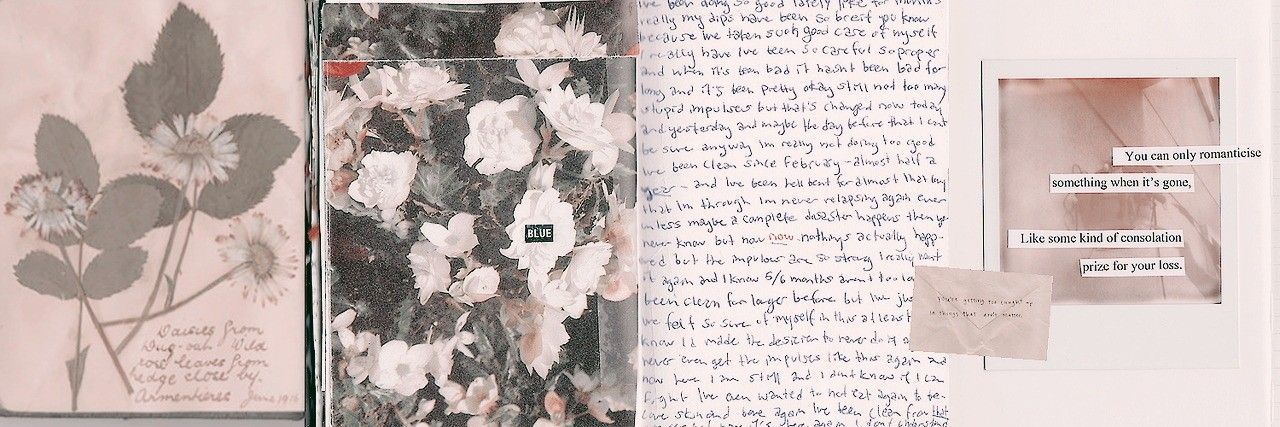 Daisies from
Dug-out. Wild
rose leaves from
hedge close by.
Armentieres June 1916
BLUE
I've been doing so good lately like for months
really my dips have been so breif you know
because I've taken such good case of myself
I really have I've been so careful so proper
and when it's been bad it hasnt been bad for
long and it's been pretty okay still not too many
stupid impulses but that's changed now today
and yesterday and maybe the day before that I cant
be sure anyway im really not doing too good
I've been clean since February - almost half a
year - and I've been hell bent for almost that long
that Im through Im never relapsing again ever
unless maybe a complete dasaster happens then yo
never know but now now nothings actually happ-
ed but the impulses are so strong I really want
it again and I know 5/6 months arent too lo
been clean for larger before but I'm jus
I've felt so sure of myself in this at least
know I'd made the desicion to never do it a
never even get the impulses like this again and
now here I am still and I dont know if I can
fight I've even wanted to not eat again to be-
come skin and bone again I've been clean from that
again I dont understand
You can only romanticise
something when it's gone,
Like some kind of consolation
prize for your loss.
you're getting too caught up
in things that don't matter.